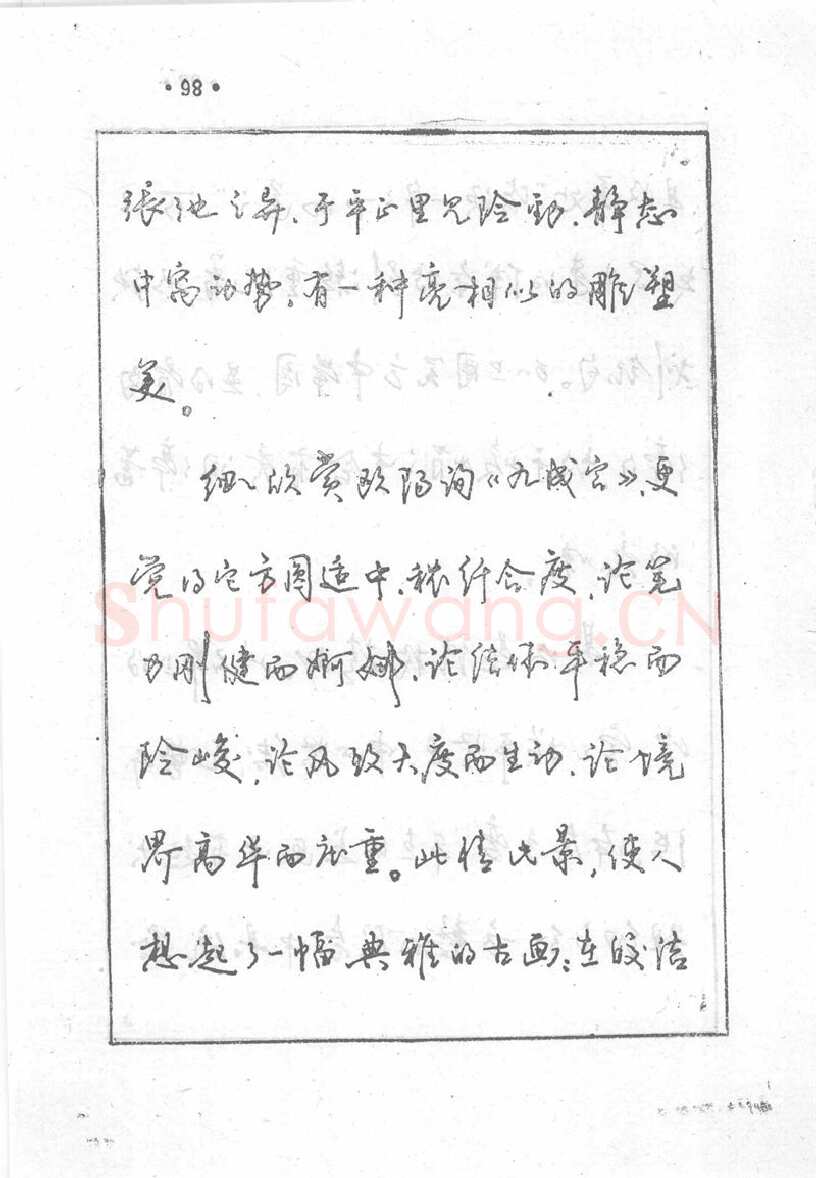 ·98·
张弛之异、于平正里见险劲、静态
中寓动势，有一种亮相似的雕塑
美。
细心欣赏欧阳询《九成宫》，更
觉得它方圆适中、秾纤合度，论笔
力刚健而婀娜，论结体平稳而
险峻，论风致大度而生动，论境
界高华而庄重。此情此景，使人
想起了一幅典雅的古画：在皎洁
Shufawang.CN